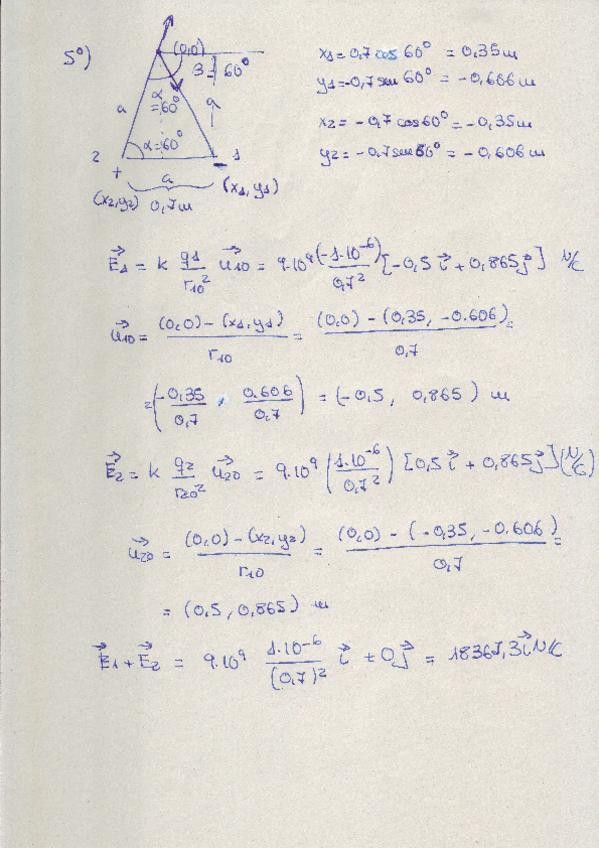 5º)
(0,0)
β = 60º
α = 60º
a
a
α = 60º
2
1
+
-
a
(x1, y1)
(x2, y2) 0,7m
x1 = 0,7 cos 60º = 0,35m
y1 = -0,7 sen 60º = -0,606m
x2 = -0,7 cos 60º = -0,35m
y2 = -0,7 sen 60º = -0,606m
E⃗1 = k q1/r10² u⃗10 = 9·10⁹ (-1·10⁻⁶)/0,7² [-0,5 i⃗ + 0,865 j⃗] N/C
u⃗10 = (0,0) - (x1, y1)/r10 = (0,0) - (0,35, -0.606)/0,7 =
= (-0,35/0,7, 0.606/0.7) = (-0,5, 0,865) m
E⃗2 = k q2/r20² u⃗20 = 9·10⁹ (1·10⁻⁶/0,7²) [0,5 i⃗ + 0,865 j⃗] (N/C)
u⃗20 = (0,0) - (x2, y2)/r10 = (0,0) - (-0,35, -0.606)/0,7 =
= (0,5, 0,865) m
E⃗1 + E⃗2 = 9·10⁹ 1·10⁻⁶/(0,7)² i⃗ + 0 j⃗ = 18367,3 i⃗ N/C